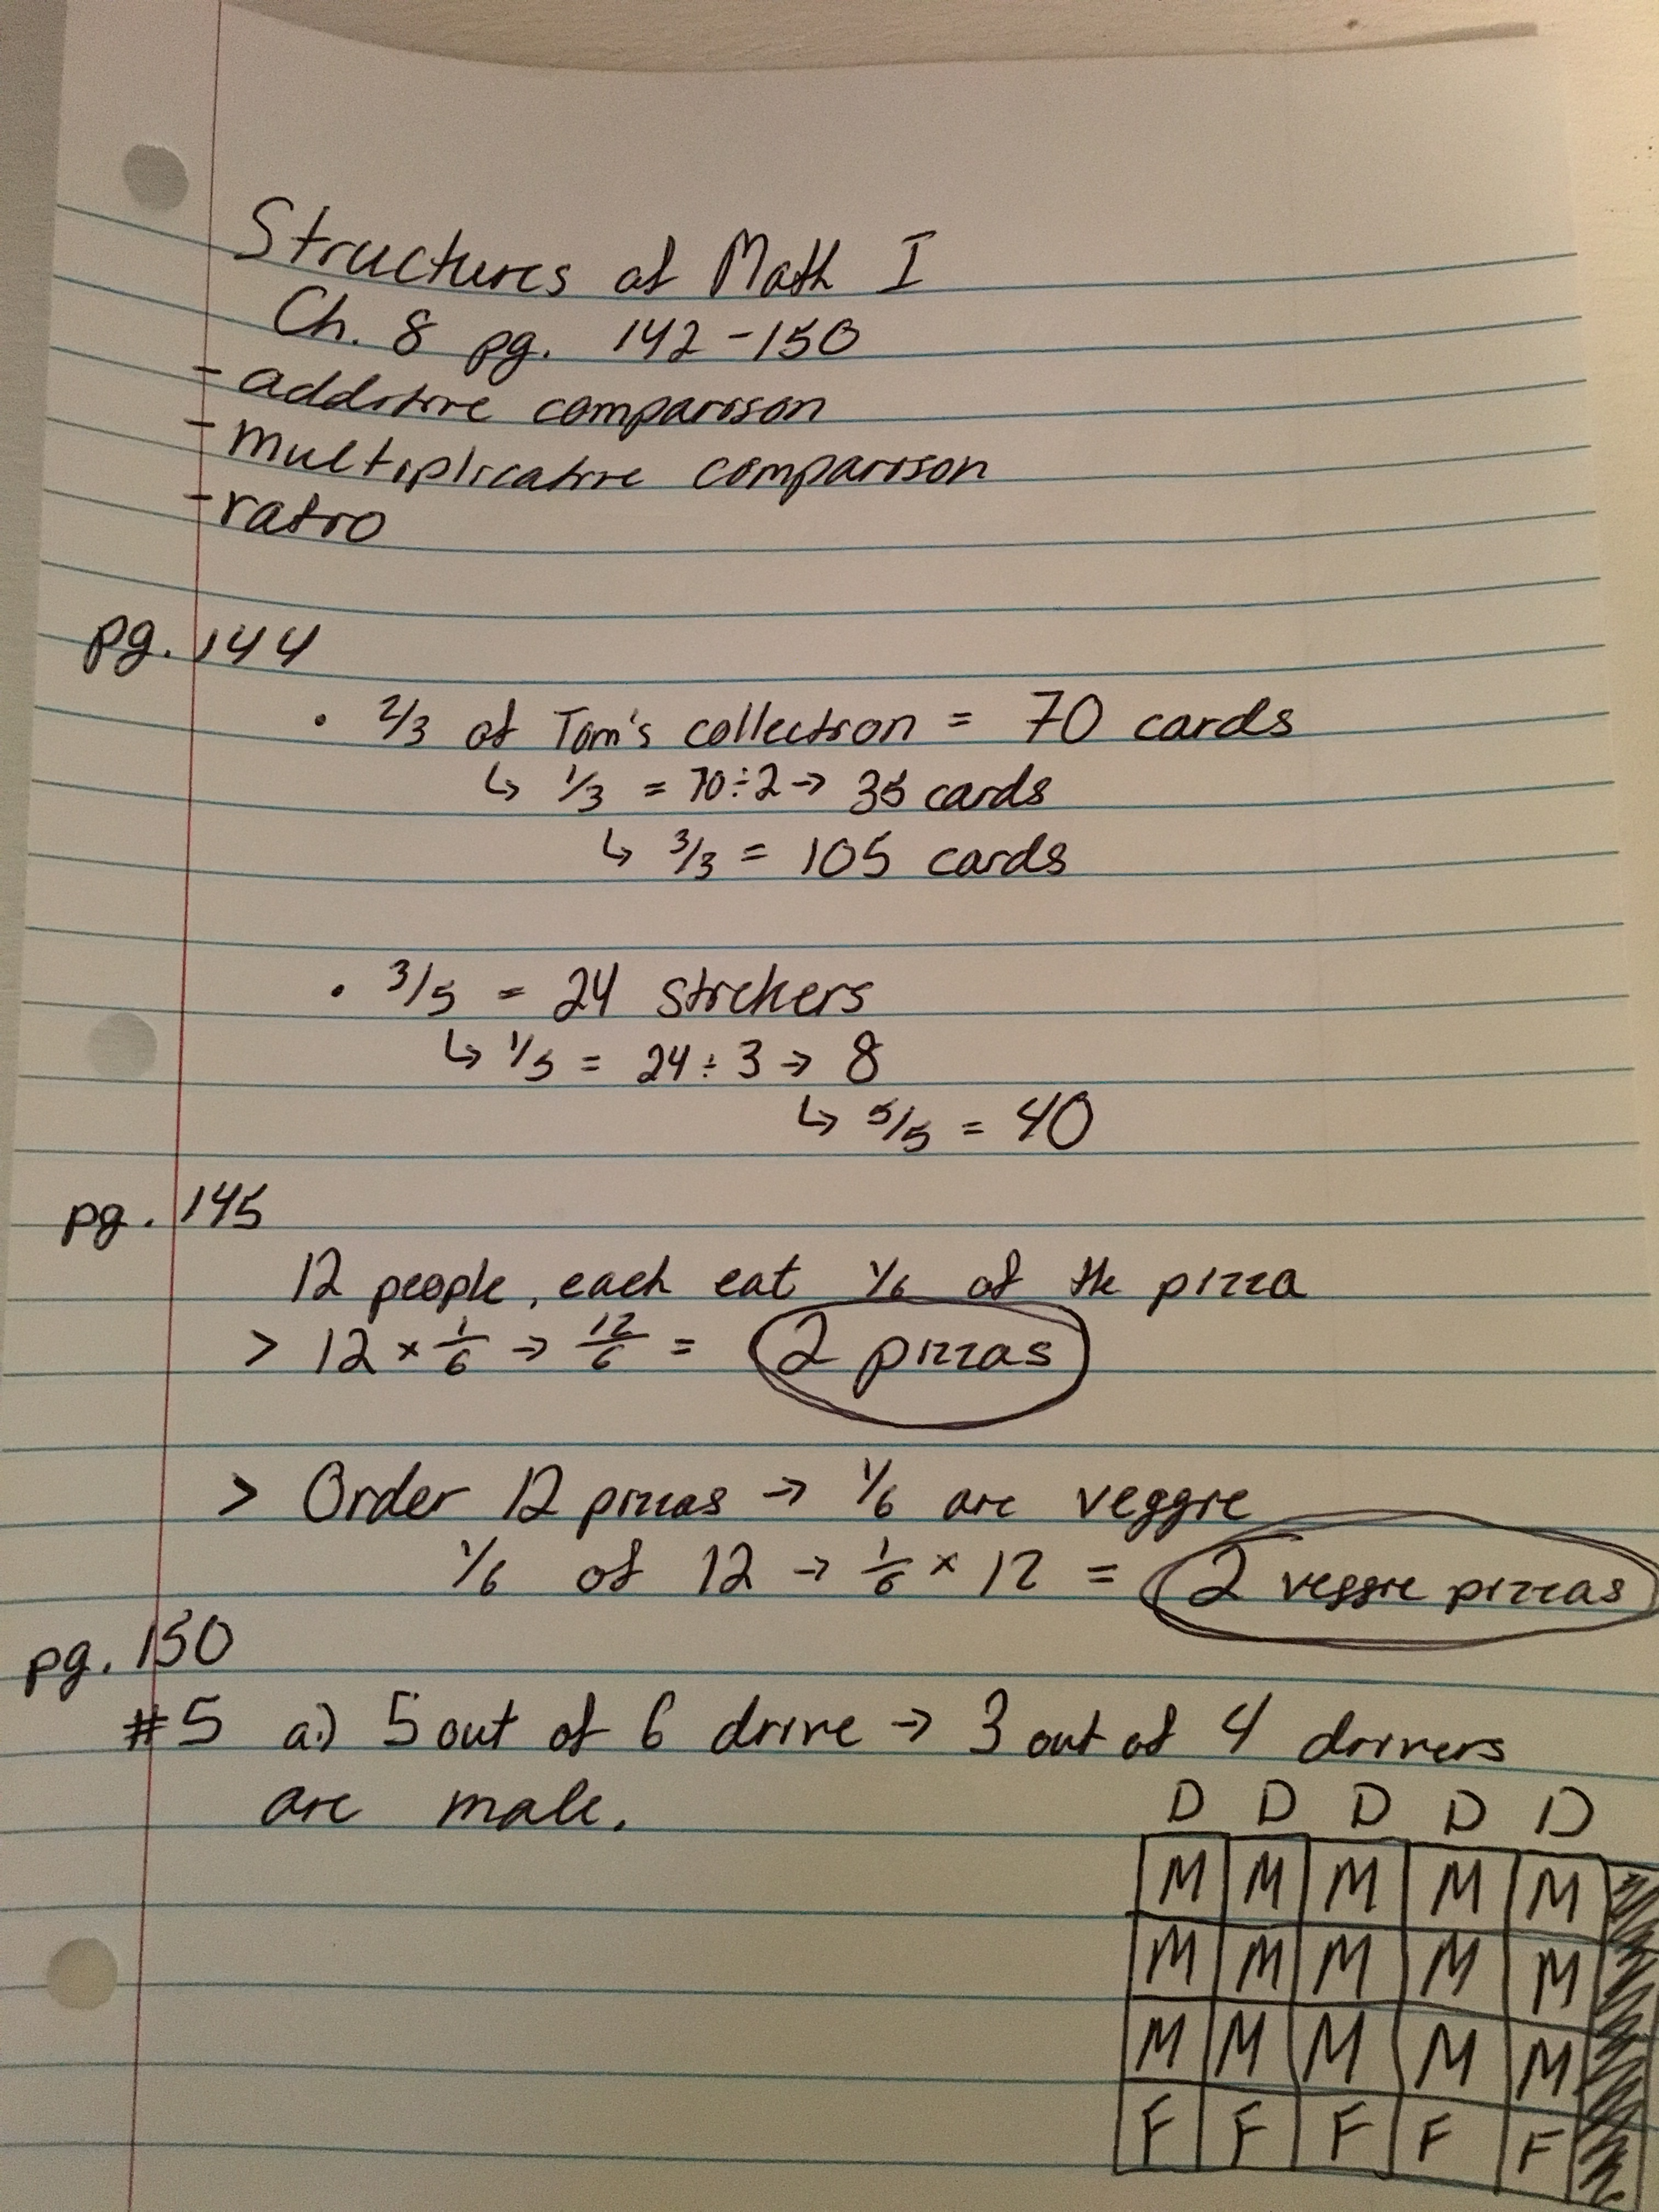 Structures of Math I
Ch. 8 pg. 142-150
- additive comparison
- multiplicative comparison
- ratio
pg. 144
• 2/3 of Tom's collection = 70 cards
↳ 1/3 = 70÷2→ 35 cards
↳ 3/3 = 105 cards
• 3/5 = 24 stickers
↳ 1/5 = 24÷3→ 8
↳ 5/5 = 40
pg. 145
12 people, each eat 1/6 of the pizza
> 12 × 1/6 → 12/6 = 2 pizzas
> Order 12 pizzas → 1/6 are veggie
1/6 of 12 → 1/6 × 12 = 2 veggie pizzas
pg. 150
#5 a.) 5 out of 6 drive → 3 out of 4 drivers
are male.
D D D D D
M M M M M
M M M M M
M M M M M
F F F F F